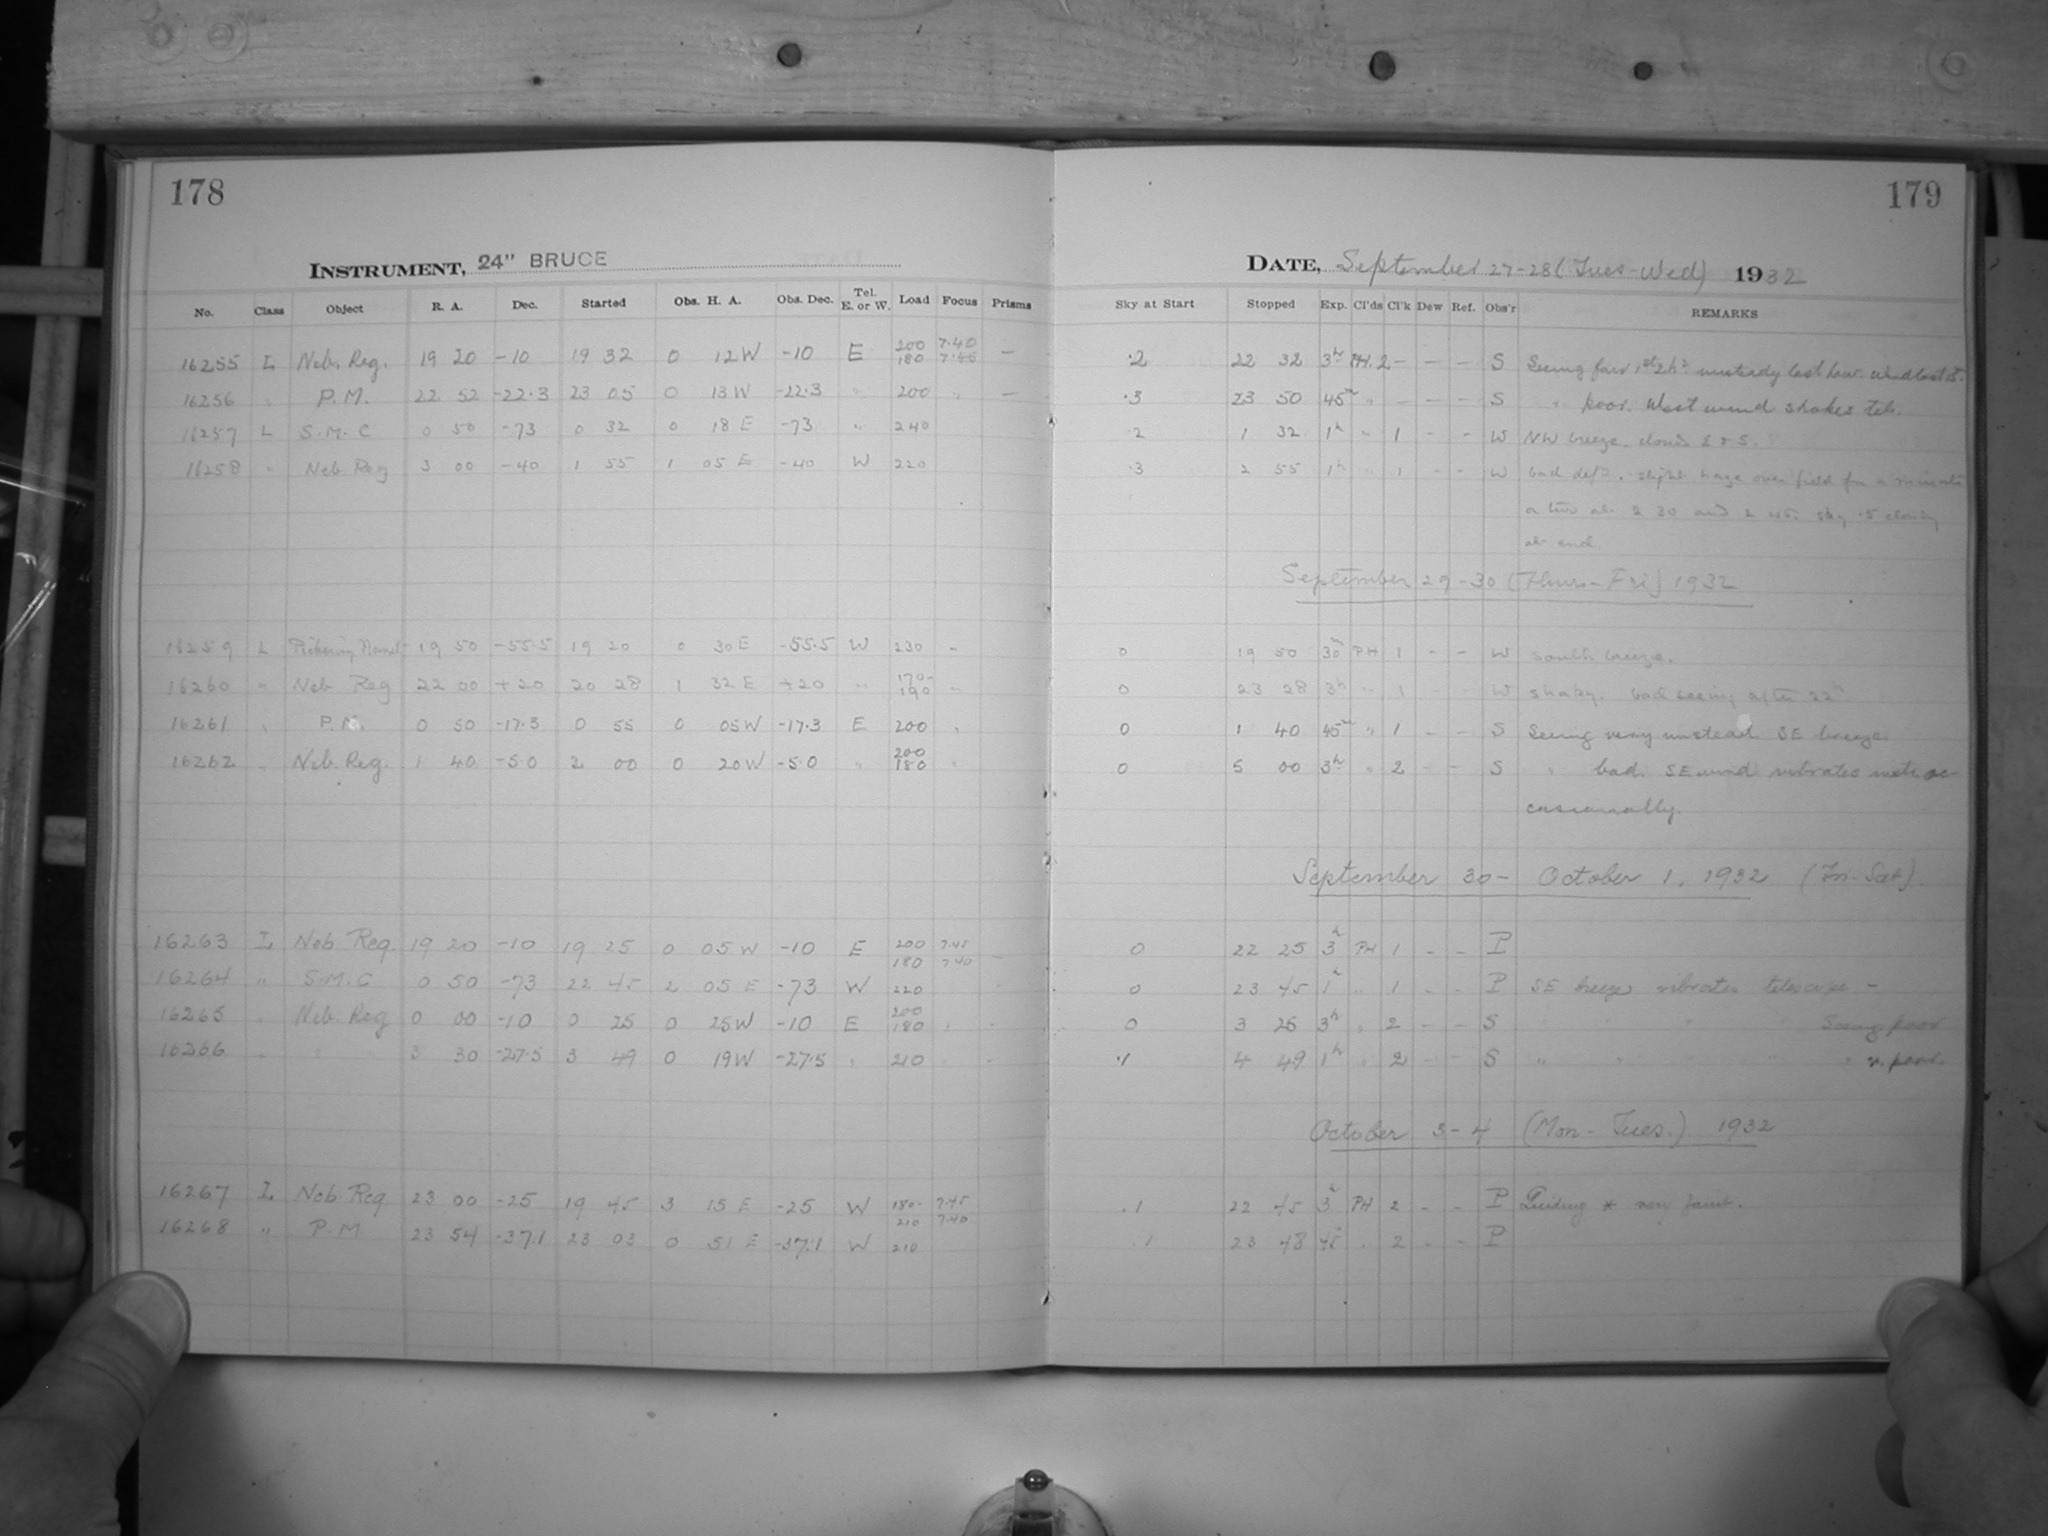 178
179
INSTRUMENT, 24" BRUCE
DATE, September 27-28 (Tues-Wed) 1932
No. Class Object R. A. Dec. Started Obs. H. A. Obs. Dec. Tel. E. or W. Load Focus Prisms Sky at Start Stopped Exp. Cl'ds Cl'k Dew Ref. Obs'r REMARKS
16255 L Neb. Reg. 19 20 -10 19 32 0 12 W -10 E 200 180 7.40 7.45 — .2 22 32 3h PH. 2 - - - S Seeing fair 1st 2hs unsteady last hour.
16256 " P.M. 22 52 -22.3 23 05 0 13 W -22.3 " 200 " — .3 23 50 45m " - - - S " poor. West wind shakes tel.
16257 L S.M.C 0 50 -73 0 32 0 18 E -73 " 240 .2 1 32 1h " 1 - - W NW breeze. clouds E & S.
16258 " Neb Reg 3 00 -40 1 55 1 05 E -40 W 220 .3 2 55 1h " 1 - - W bad defn. slight haze over field for a minute
or two at 2 30 and 2 45. sky .5 cloudy
at end.
September 29-30 (Thurs-Fri) 1932
16259 L Pickering 19 50 -55.5 19 20 0 30 E -55.5 W 230 " 0 19 50 30m PH 1 - - W south breeze.
16260 " Neb Reg 22 00 +20 20 28 1 32 E +20 " 170-190 " 0 23 28 3h " 1 - - W shaky. bad seeing after 22h
16261 " P.M. 0 50 -17.3 0 55 0 05 W -17.3 E 200 " 0 1 40 45m " 1 - - S Seeing very unstead. SE breeze.
16262 " Neb. Reg. 1 40 -5.0 2 00 0 20 W -5.0 " 200 180 " 0 5 00 3h " 2 - - S " bad. SE wind vibrates inst. oc-
casionally.
September 30- October 1, 1932 (Fri-Sat).
16263 L Neb Reg. 19 20 -10 19 25 0 05 W -10 E 200 180 7.45 7.40 - 0 22 25 3h PH 1 - - P
16264 " S.M.C 0 50 -73 22 45 2 05 E -73 W 220 - 0 23 45 1h " 1 - - P SE breeze vibrates telescope -
16265 " Neb. Reg 0 00 -10 0 25 0 25 W -10 E 200 180 " - 0 3 25 3h " 2 - - S " " " " Seeing poor
16266 " " " 3 30 -27.5 3 49 0 19 W -27.5 " 210 - .1 4 49 1h " 2 - - S " " " " " v. poor.
October 3-4 (Mon-Tues.) 1932
16267 L Neb Reg 23 00 -25 19 45 3 15 E -25 W 180-210 7.45 7.40 .1 22 45 3h PH 2 - - P Guiding * very faint.
16268 " P.M. 23 54 -37.1 23 03 0 51 E -37.1 W 210 .1 23 48 45 " 2 - - P